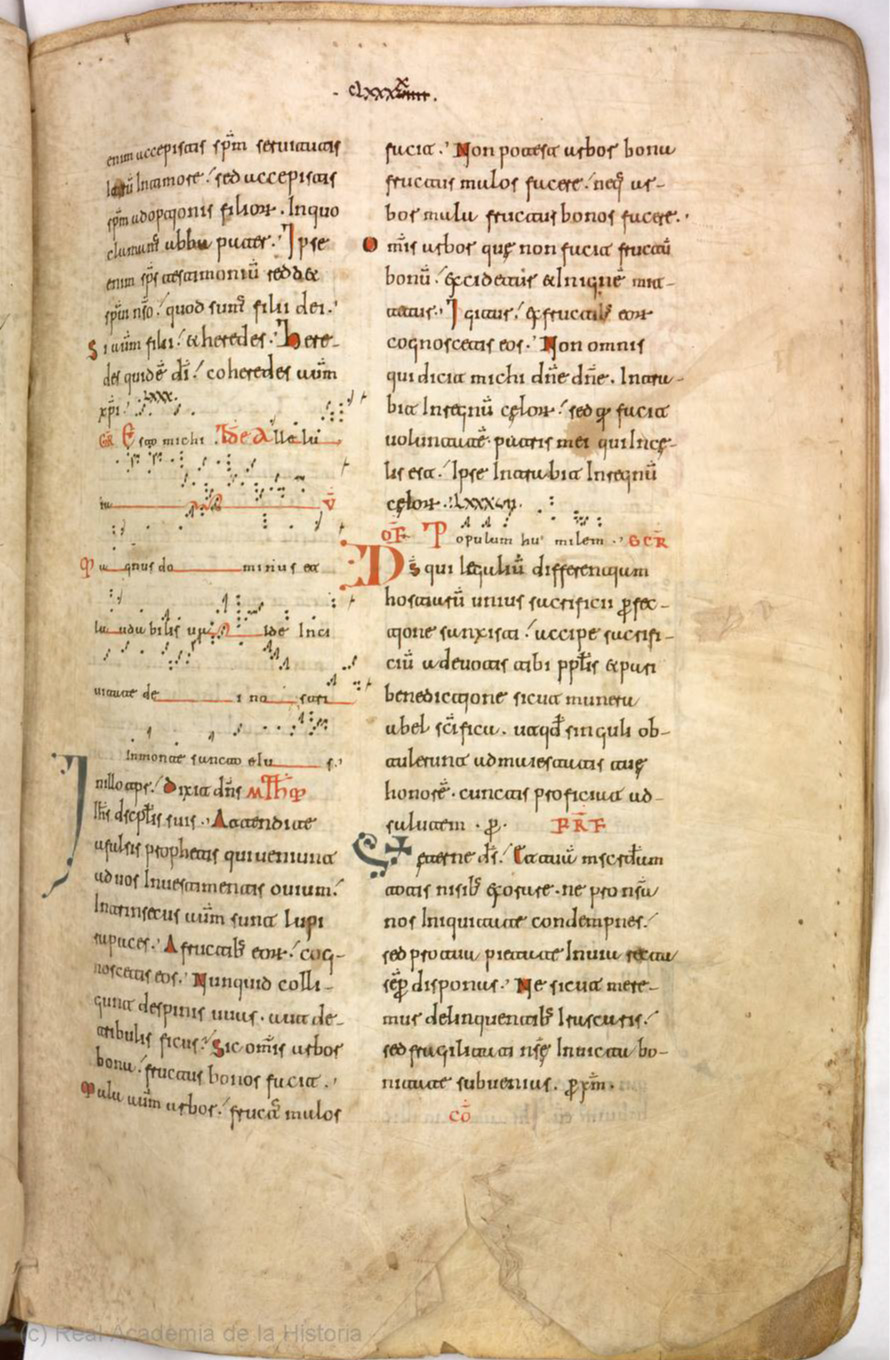 enim accepistis sp̄m seruitutis
iterū In timore / sed accepistis
sp̄m adoptionis filioꝝ. In quo
clamamꝰ abba pater. Ipse
enim sp̄s testimoniū reddet
sp̄ui nr̄o / quod sumꝰ filii dei.
Si autem filii / & heredes. Here-
des quidē dī / coheredes autem
xp̄i. lxxx.
GR Esto michi Ide Allelu
ia V̄
Magnus dominus et
laudabilis ualde In ci
uitate dei nostri
In monte sancto eius.
In illo tp̄r / Dixit dn̄s MTH
Ih̄s discplīs suis. Attendite
a falsis prophetis qui ueniunt
ad uos In uestimentis ouium /
Intrinsecus autem sunt lupi
rapaces. A fructibꝰ eoꝝ / cog-
noscetis eos. Nunquid colli-
gunt de spinis uuas. aut de
tribulis ficus / Sic om̄is arbor
bona / fructus bonos facit.
Mala autem arbor / fructꝰ malos
facit. Non potest arbor bona
fructus malos facere / neq; ar-
bor mala fructus bonos facere.
Om̄is arbor quę non facit fructū
bonū / excidetur & In ignē mit-
tetur. Igitur / ex fructibꝰ eoꝝ
cognoscetis eos. Non omnis
qui dicit michi dn̄e dn̄e. Intra-
bit In regnū cęloꝝ / sed q̄ facit
uoluntatē patris mei qui In cę-
lis est / Ipse Intrabit In regnū
cęloꝝ. lxxxvii.
OF̄ Populum humilem. SCR̄
Dꝰs qui legaliū differentiam
hostiarū unius sacrificii ꝑfec-
tione sanxisti / accipe sacrifi-
ciū a deuotis tibi pplīs & pari
benedictione sicut munera
abel scīfica. ut qd̄ singuli ob-
tulerunt ad maiestatis tuę
honorē. cunctis proficiat ad
salutem. ꝑ. PR̄F
Eterne ds̄ / Et tuā mscrd̄iam
totis nisibꝰ exorare. ne pro nr̄a
nos Iniquitate condempnes /
sed pro tua pietate In uia recta
semꝑ disponas. Ne sicut mere-
mur delinquentibꝰ Irascaris /
sed fragilitati nr̄ę Inuicta bo-
nitate subuenias. ꝑ xp̄m.
CŌ
(c) Real Academia de la Historia